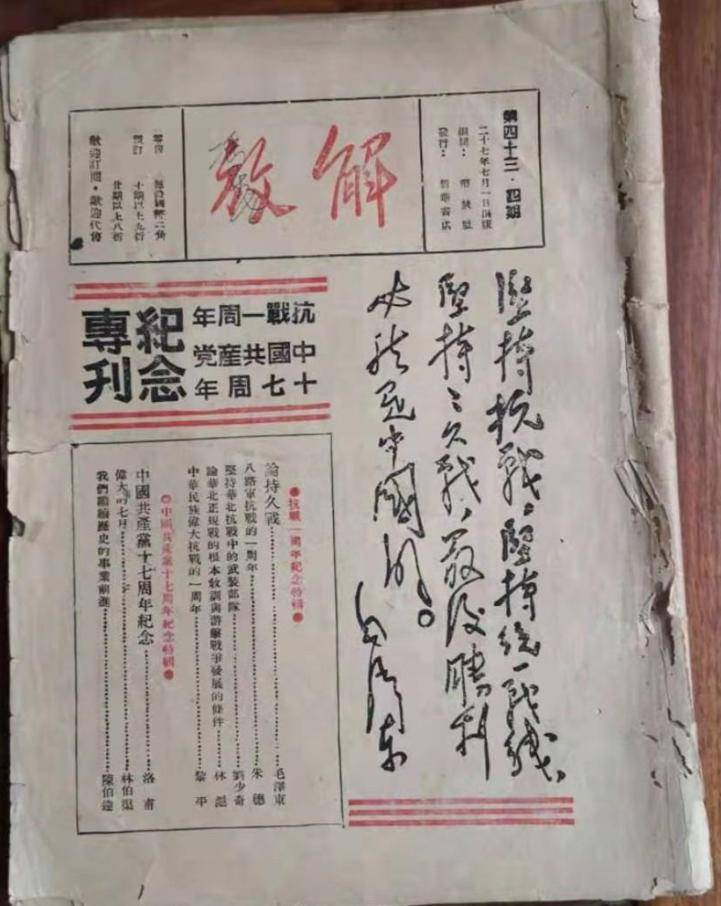 第四十三·四期
二十七年七月一日出版
編輯：解放社
發行：新華書店
解放
零售
預訂 十期以上九折
廿期以上八折
歡迎訂閱·歡迎代售
堅持抗戰，堅持統一戰綫，
堅持〻久戰，最後勝利
必然是中國的。
毛澤東
抗戰一周年
中國共産党
十七周年
紀念
專刊
抗戰一周年紀念特輯
論持久戰……毛澤東
八路軍抗戰的一周年……朱德
堅持華北抗戰中的武裝部隊……劉少奇
論華北正規戰的根本敎訓與游擊戰爭發展的條件……林彪
中華民族偉大抗戰的一周年……黎平
中國共產黨十七周年紀念特輯
中國共產黨十七周年紀念……洛甫
偉大的七月……林伯渠
我們繼續歷史的事業前進……陳伯達